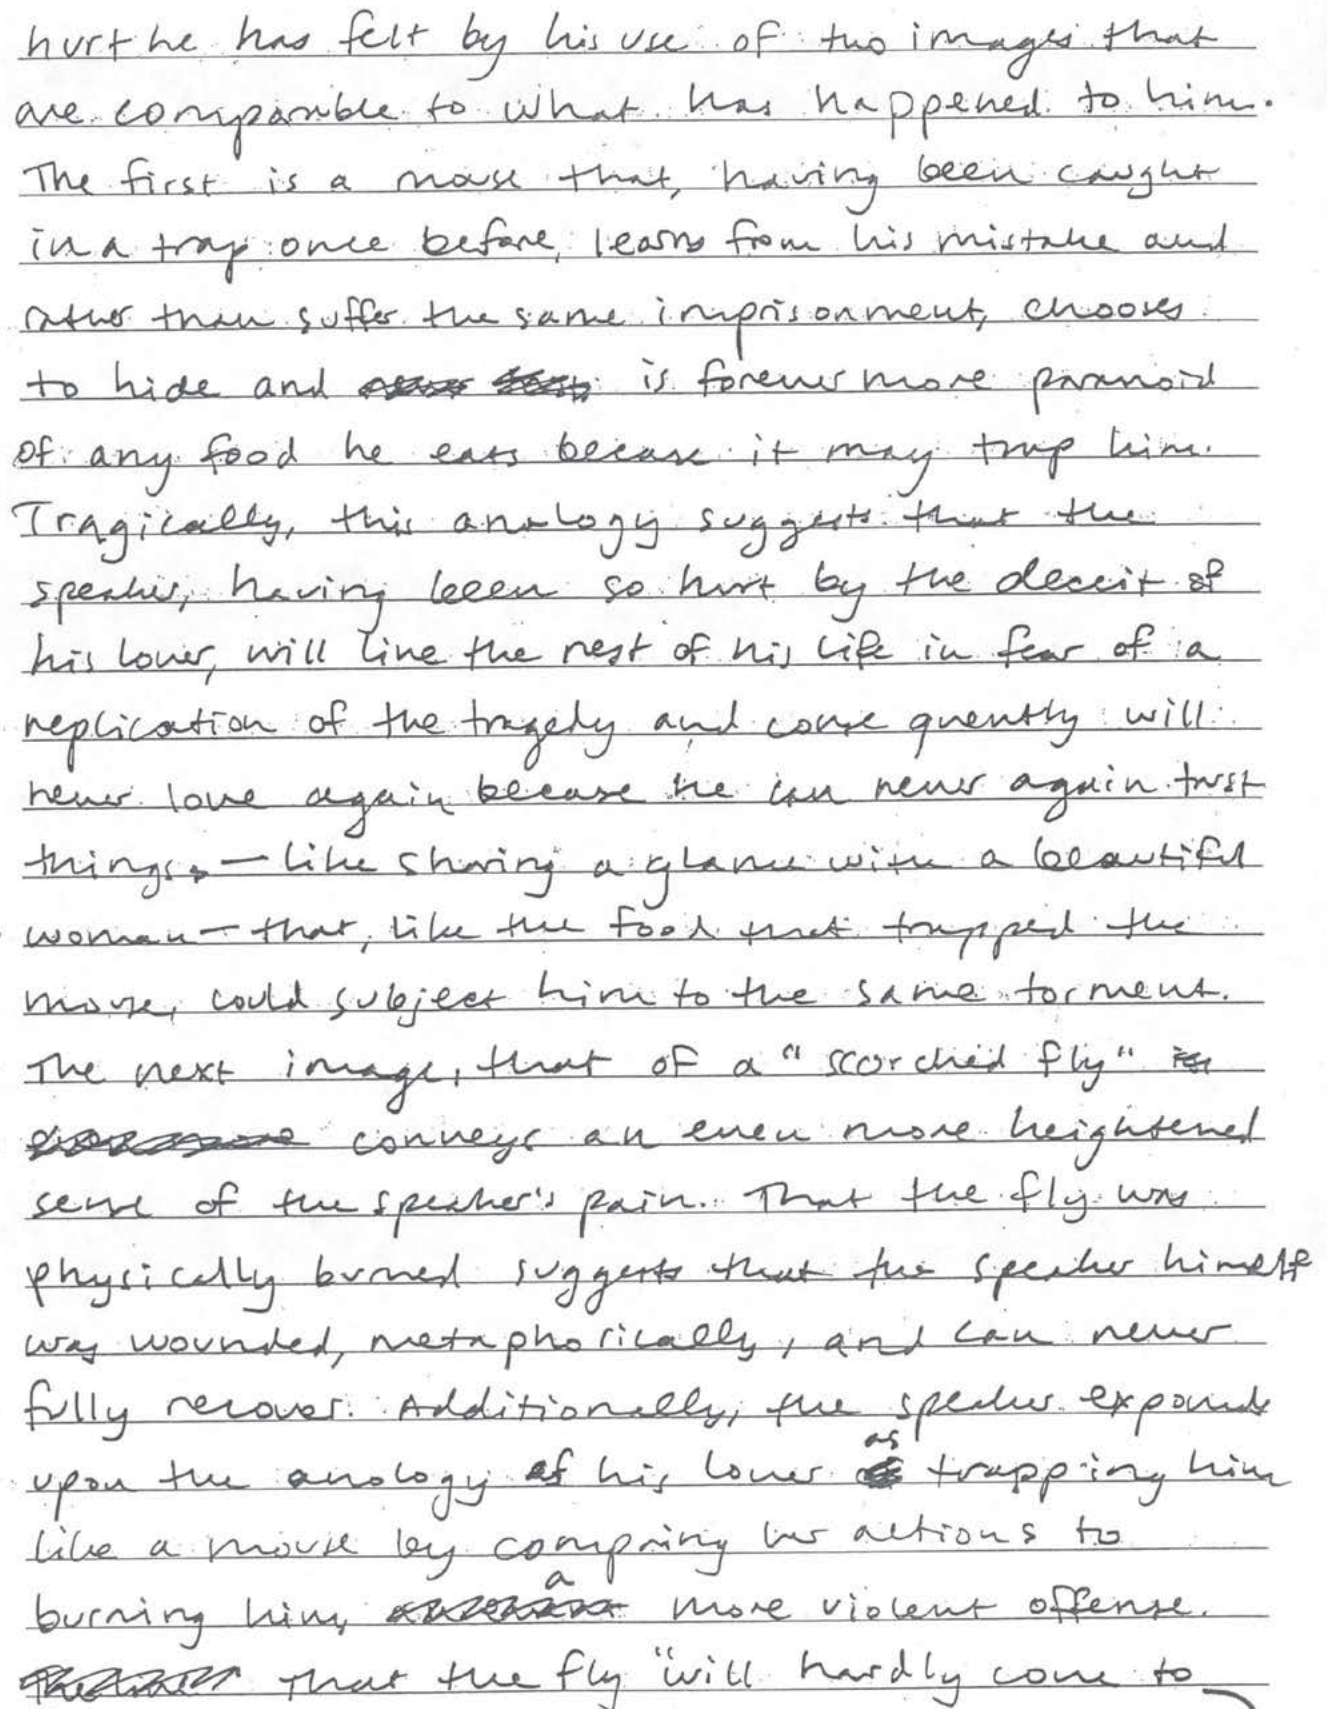 hurt he has felt by his use of two images that
are comparable to what has happened to him.
The first is a mouse that, having been caught
in a trap once before, learns from his mistake and
rather than suffer the same imprisonment, chooses
to hide and is forever more paranoid
of any food he eats because it may trap him.
Tragically, this analogy suggests that the
speaker, having been so hurt by the deceit of
his lover, will live the rest of his life in fear of a
replication of the tragedy and consequently will
never love again because he can never again trust
things — like sharing a glance with a beautiful
woman — that, like the food that trapped the
mouse, could subject him to the same torment.
The next image, that of a "scorched fly"
conveys an even more heightened
sense of the speaker's pain. That the fly was
physically burned suggests that the speaker himself
was wounded, metaphorically, and can never
fully recover. Additionally, the speaker expounds
upon the analogy of his lover as trapping him
like a mouse by comparing her actions to
burning him, a more violent offense.
That the fly "will hardly come to